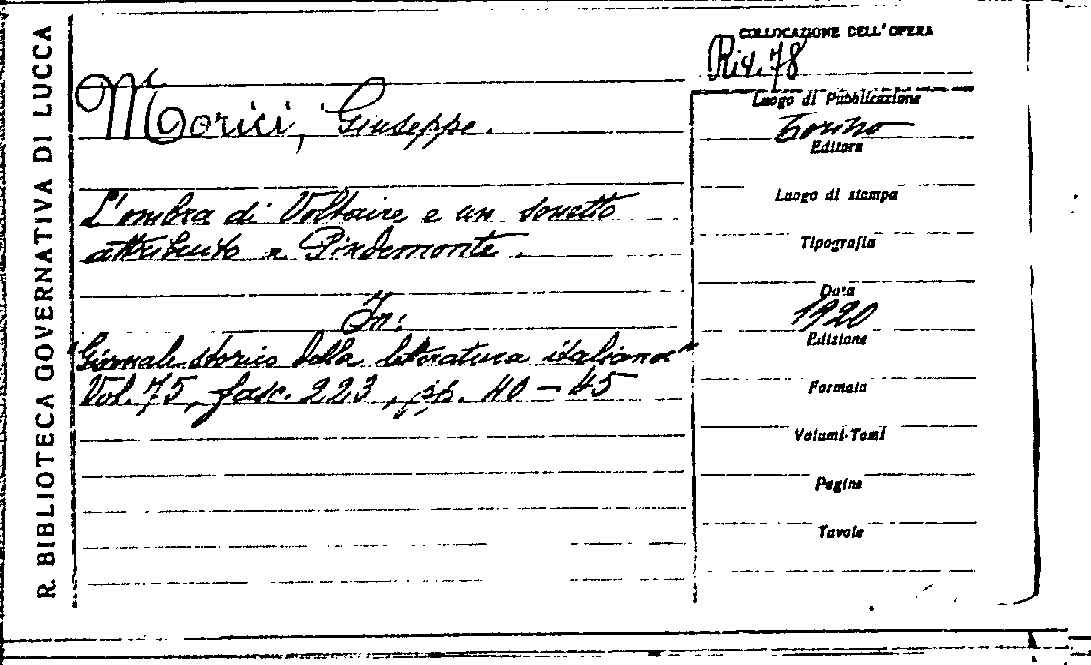 R. BIBLIOTECA GOVERNATIVA DI LUCCA
COLLOCAZIONE DELL'OPERA
Riv. 78
Morici, Giuseppe.
L'ombra di Voltaire e un sonetto
attribuito a Pindemonte.
In:
"Giornale storico della letteratura italiana"
Vol. 75, fasc. 223, pp. 40-45
Luogo di Pubblicazione
Torino
Editore
Luogo di stampa
Tipografia
Data
1920
Edizione
Formato
Volumi-Tomi
Pagine
Tavole